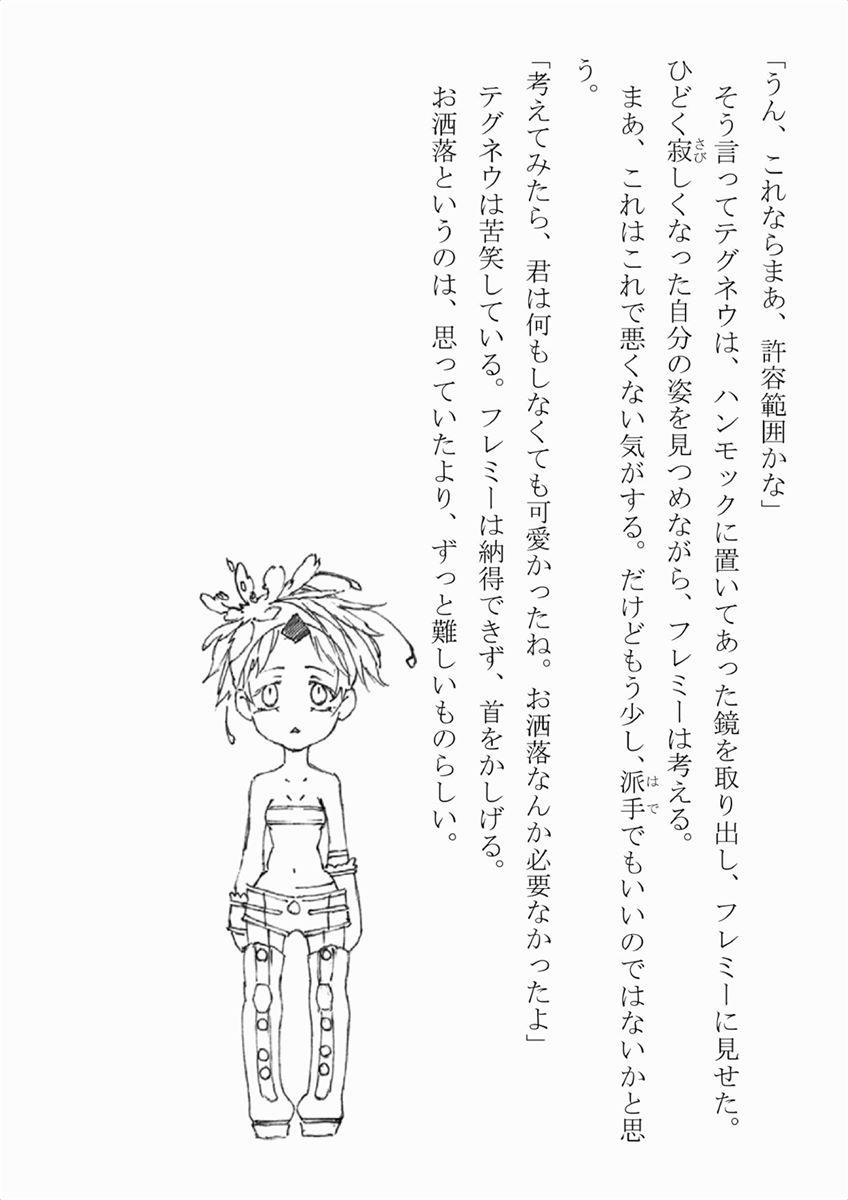 「うん、これならまあ、許容範囲かな」
そう言ってテグネウは、ハンモックに置いてあった鏡を取り出し、フレミーに見せた。
ひどく寂しくなった自分の姿を見つめながら、フレミーは考える。
まあ、これはこれで悪くない気がする。だけどもう少し、派手でもいいのではないかと思
う。
「考えてみたら、君は何もしなくても可愛かったね。お洒落なんか必要なかったよ」
テグネウは苦笑している。フレミーは納得できず、首をかしげる。
お洒落というのは、思っていたより、ずっと難しいものらしい。
さび
はで